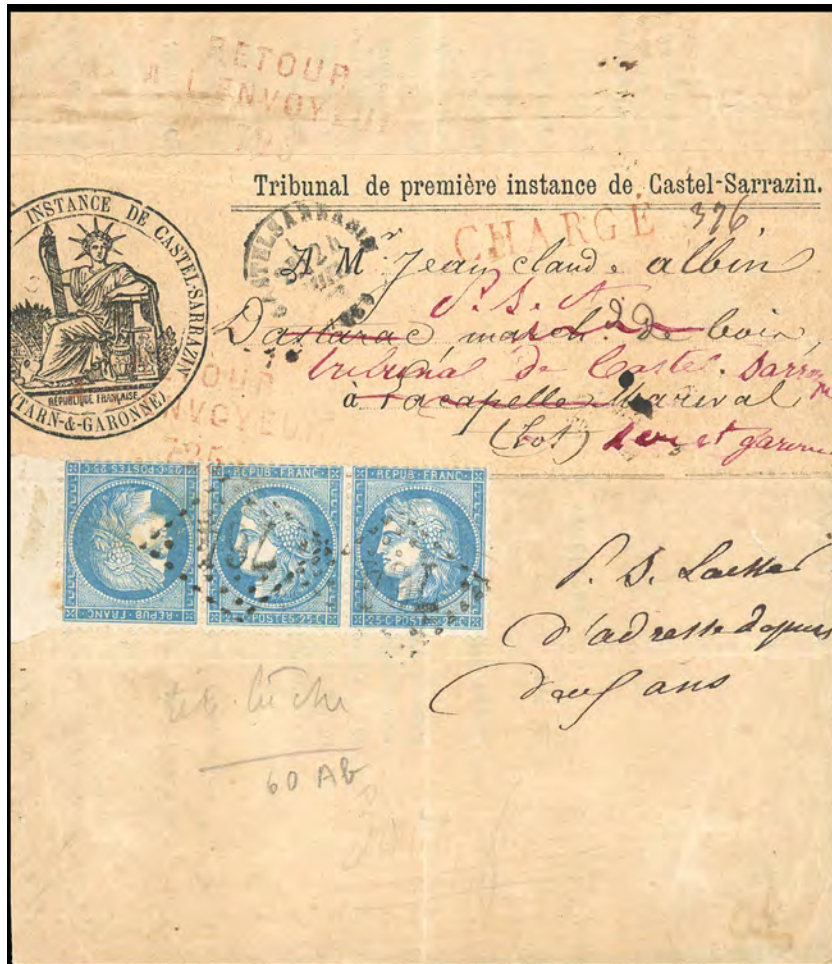 RETOUR
A L'ENVOYEUR
Tribunal de première instance de Castel-Sarrazin.
INSTANCE DE CASTEL-SARRAZIN
(TARN-&-GARONNE)
RÉPUBLIQUE FRANÇAISE
CASTELSARRASIN
CHARGÉ 376
A Mr Jean claude albin
march. de bois,
tribunal de Castel-Sarra
à Lacapelle Marival
(Lot) garonne
RETOUR
ENVOYEUR
725
REPUB FRANC
25 C POSTES 25 C
REPUB FRANC
25 C POSTES 25 C
REPUB FRANC
25 C POSTES 25 C
d'adresse depuis
deux ans
tête bêche
60 Ab